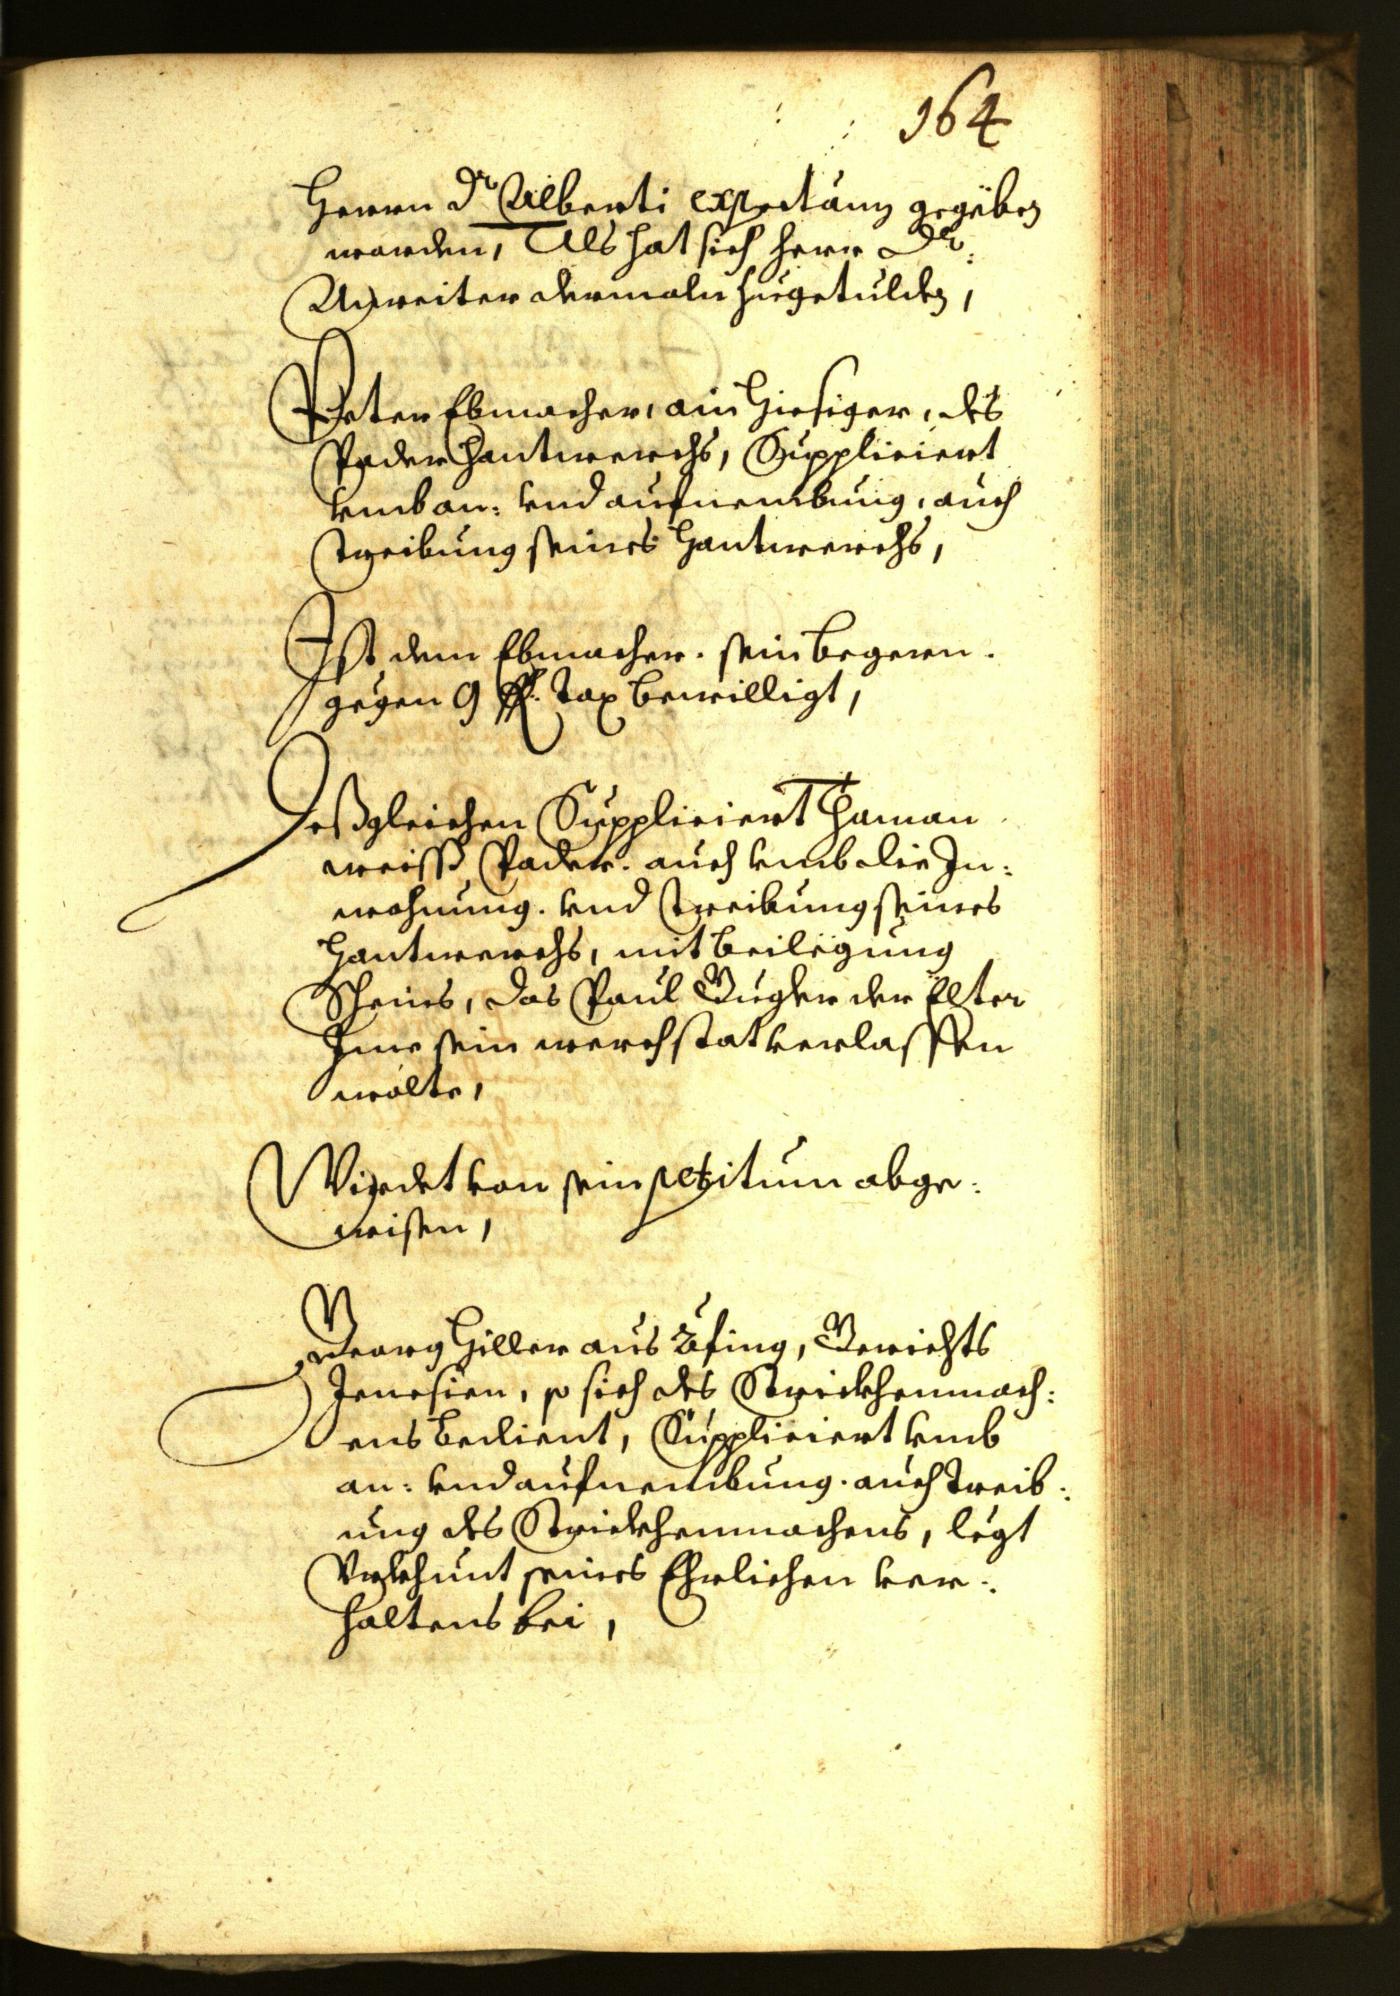 164
Herrn Dr Alberti expectanz gegeben
worden, Als hat sich herr Dr:
Anreiter dermaln zugetulden,
Peter Ebmacher, ain hiesiger, des
Pader hantwerchs, Suppliciert
umb an: und aufnembung, auch
Treibung seines hantwerchs,
Ist dem Ebmacher. sein begeren.
gegen 9 fl: tax bewilligt,
Deßgleichen Suppliciert Thaman
weiss Pader. auch umb die In:
wohnung. und Treibung seines
hantwerchs, mit beilegung
Scheins, das Paul Gugler der Elter
Ime sein werchstat verlassen
wolte,
Wirdet von sein petitum abge:
weisen,
Georg Hiller aus Afing, Gerichts
Jenesien, so sich des Strickhenmach:
ens bedient, Suppliciert umb
an: und aufnembung. auch Treib:
ung des Strickhenmachens, legt
Urkhunt seines Ehrlichen ver:
haltens bei,